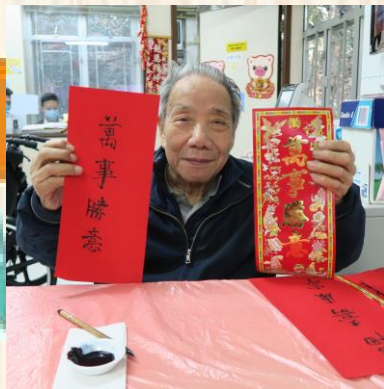 萬事勝意
萬事勝意